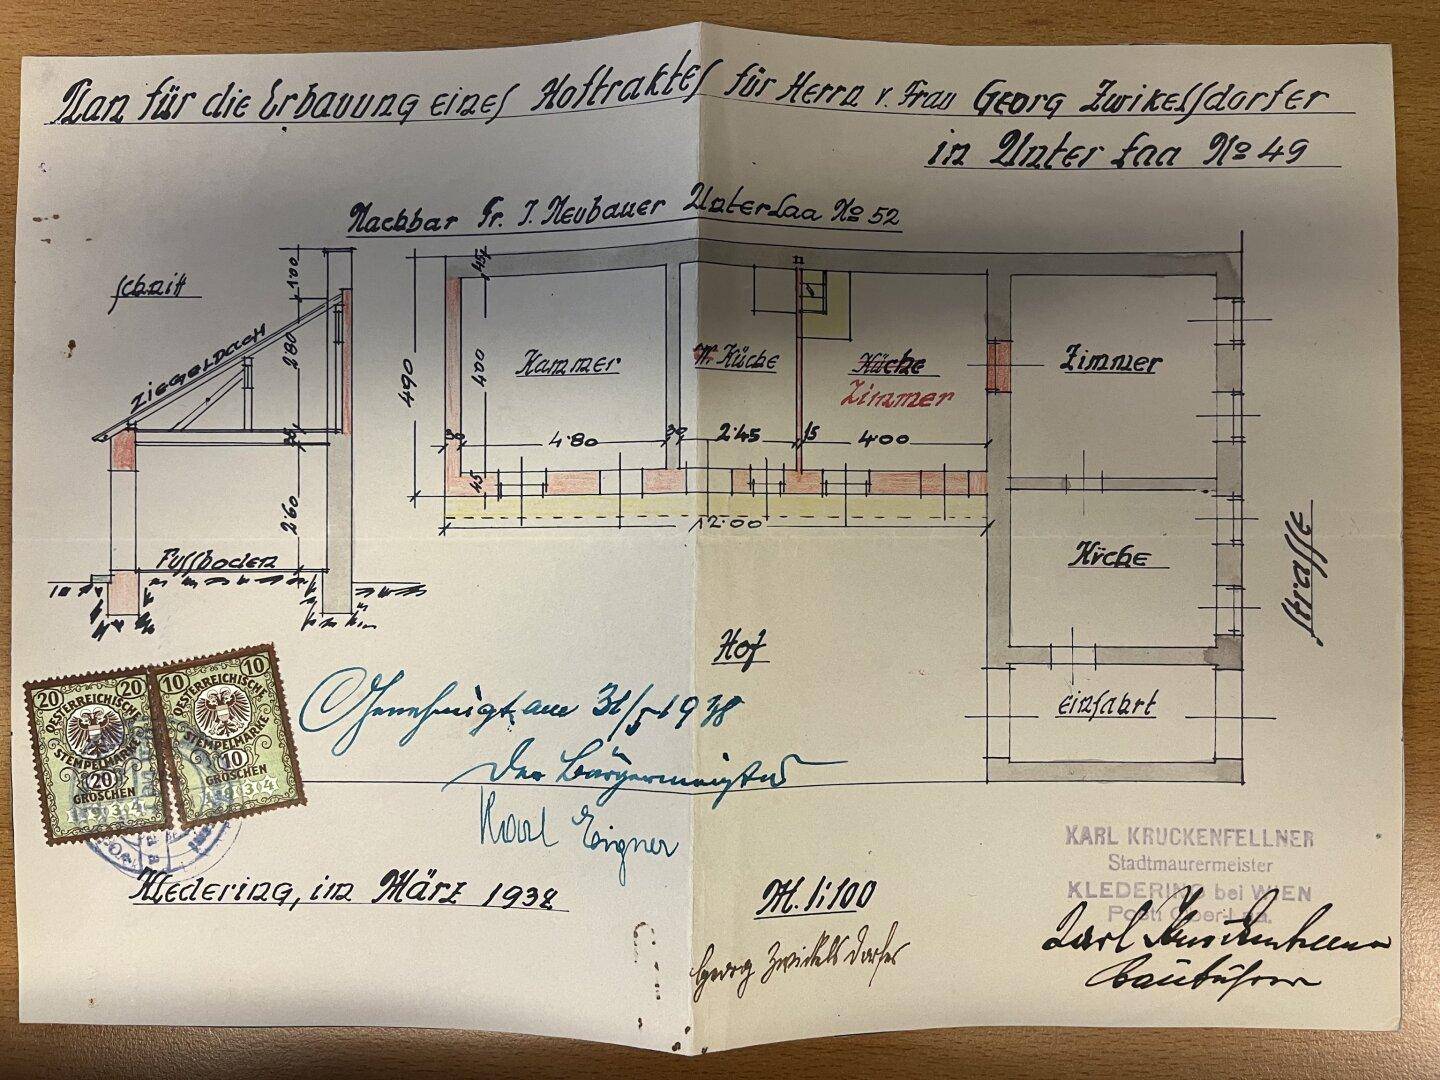 Plan für die Erbauung eines Hoftraktes für Herrn v. Frau Georg Zwikelsdorfer
in Unter Laa No 49
Nachbar Fr. J. Neubauer Unterlaa No 52
Schnitt
Ziegeldach
1·00
2·80
2·60
Fussboden
4·90
4·00
45
45
Kammer
W. Küche
Küche
Zimmer
Zimmer
30
4·80
30
2·45
15
4·00
12·00
Küche
Strasse
Hof
Einfahrt
Genehmigt am 31/5 1938
Der Bürgermeister
Karl Eigner
20 20
OESTERREICHISCHE
STEMPELMARKE
20
GROSCHEN
1934
10 10
OESTERREICHISCHE
STEMPELMARKE
10
GROSCHEN
1934
Kledering, im März 1938
M. 1:100
Georg Zwickelsdorfer
KARL KRUCKENFELLNER
Stadtmaurermeister
KLEDERING bei WIEN
Post: Ober-Laa.
Karl Kruckenfellner
Bauführer